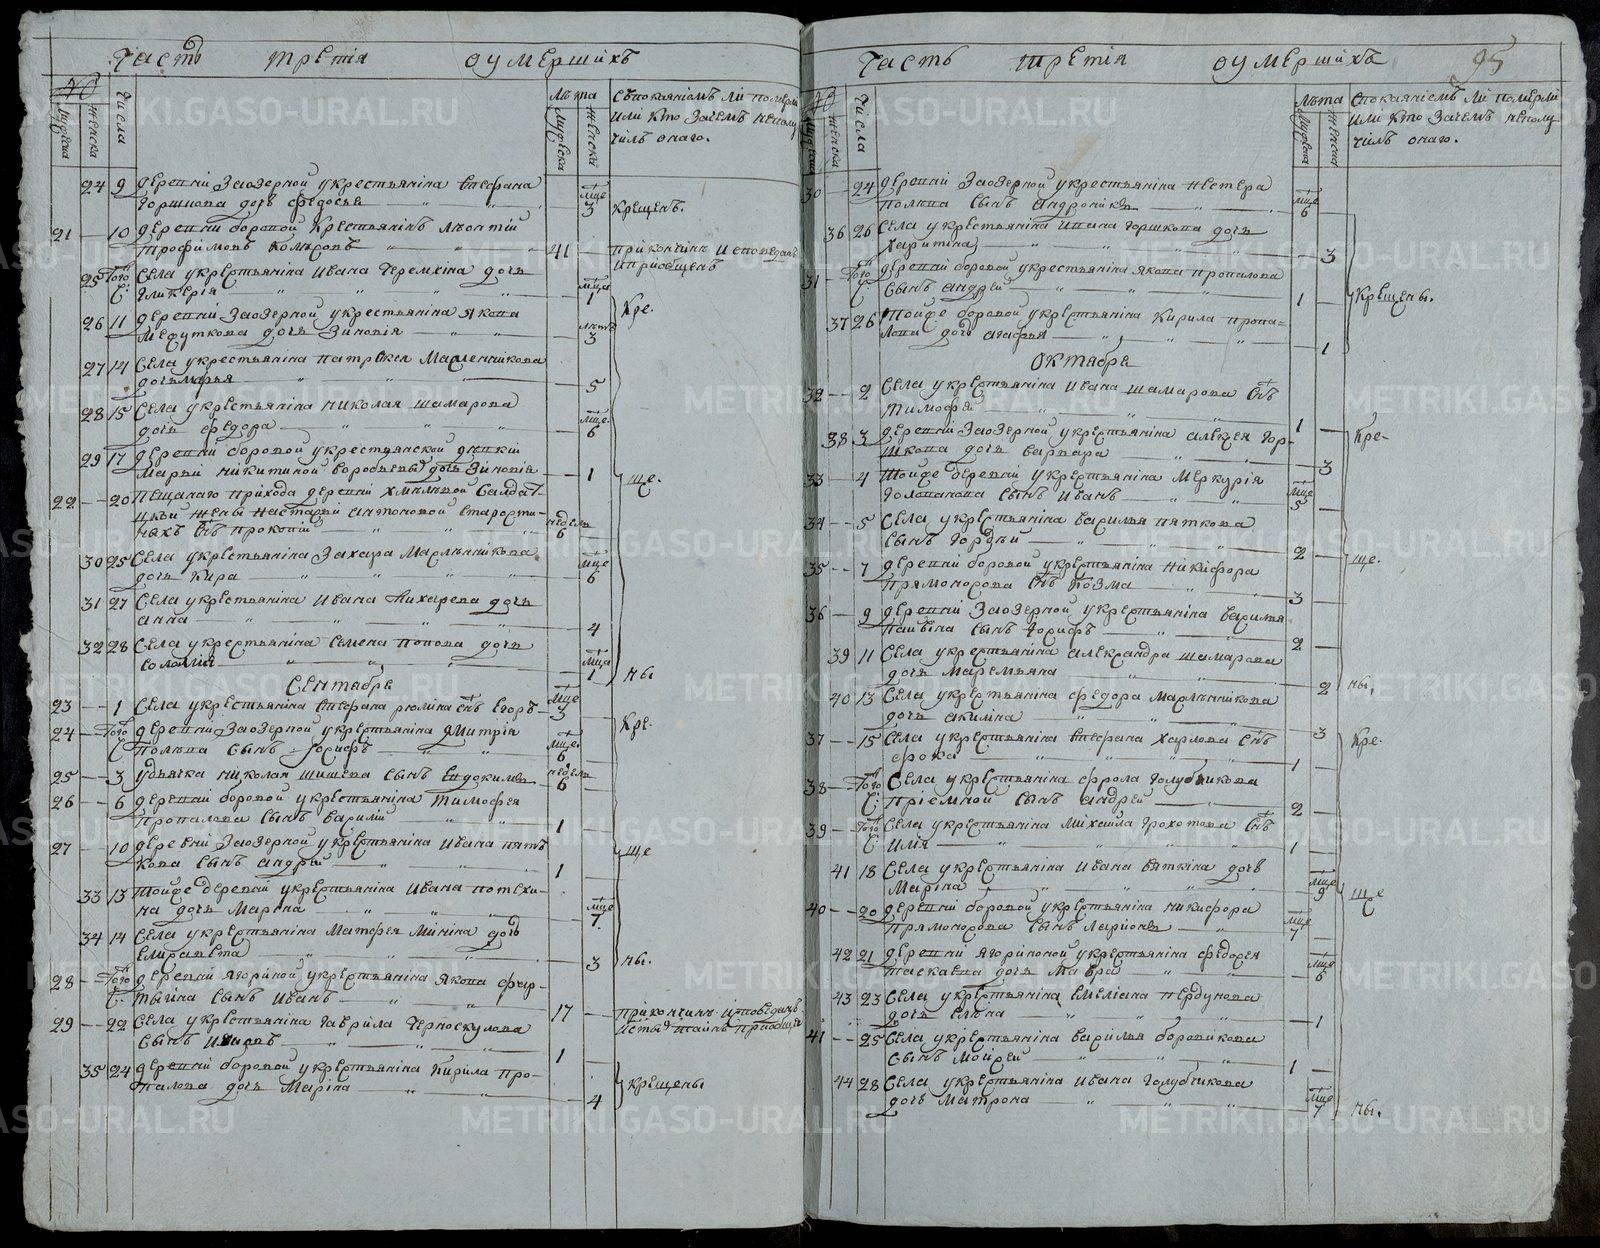 Часть третія оумершихъ
№
мужеска
женска
числа
лѣта
мужеска
женска
съпокаяніемъ ли померли
или кто зачемъ неполу
чилъ онаго.
24 9 деревни Заозерной укрестьянина Стефана
Горшкова дочь федосья мце 3 Крещенъ.
21 10 деревни боровой Крестьянинъ Леонтій
Трофимовъ Комаровъ 41 прикончинѣ исповеданъ
ипріобщенъ
25 того Села укрестьянина Ивана Черемхина дочь
ч: Гликерія мца 1 Кре.
26 11 деревни Заозерной укрестьянина Якова
дочь Зиновія 3
27 14 Села укрестьянина Масленникова
дочьмарья 5
28 15 Села укрестьянина николая шамарова
дочь федора мце 6
29 17 деревни боровой укрестьянской девки
Марьи никитиной воробьевы дочь Зиновія 1 ще.
22 20 Пещанаго прихода деревни Салдат-
цкой жены настасьи антоновой старости-
ныхъ снъ прокопій недель 6
30 25 Села укрестьянина Захара Масленникова
дочь Кира мце 6
31 27 Села укрестьянина Ивана дочь
анна 4
32 28 Села укрестьянина Семена попова дочь
соломія мца 1 ны
Сентябрь
23 1 Села укрестьянина Стефана рюмина снъ Егоръ мце 3
24 того деревни Заозерной укрестьянина Дмитрія Кре.
ч. попова сынъ мце 6
25 3 удьячка николая шишева сынъ Евдокимъ недель 6
26 6 деревни боровой укрестьянина Тимофея
Пропалова сынъ василій 1
27 10 деревни Заозерной укрестьянина Ивана пят-
кова сынъ андрей 1 ще
33 13 тойже деревни укрестьянина Ивана потехи-
на дочь Марина мце 7
34 14 Села укрестьянина Матфея Минина дочь
елисавета 3 ны.
28 того деревни укрестьянина Якова
ч. сынъ Иванъ 17 прикончинѣ исповеданъ
29 22 Села укрестьянина Гаврила Черноскулова
сынъ 1
35 24 деревни боровой укрестьянина Кирила про-
палова дочь Марина 4 крещены
Часть третія оумершихъ 95
№
мужеска
женска
числа
лѣта
мужеска
женска
спокаяніемъ ли померли
или кто зачемъ неполу
чилъ онаго.
30 24 деревни Заозерной укрестьянина нестера
попова сынъ андроникъ мце 6
36 26 Села укрестьянина Ивана Горшкова дочь
харитина 3
31 того деревни боровой укрестьянина якова пропалова
ч. сынъ андрей 1 Крещены.
37 26 тойже боровой укрестьянина Кирила пропа-
лова дочь агафья 1
Октябрь
32 2 Села укрестьянина Ивана шамарова снъ
тимофей 1
38 3 деревни Заозерной укрестьянина алексея Гор- Кре-
шкова дочь варвара 3
33 4 тойже деревни укрестьянина Меркурія
сынъ Иванъ мце 5
34 5 Села укрестьянина василья пяткова
сынъ Гордѣй 2
35 7 деревни боровой укрестьянина никифора ще.
прямоносова снъ козма 3
36 9 деревни Заозерной укрестьянина василья
сынъ 2
39 11 Села укрестьянина александра шамарова
дочь Маремьяна 2 ны.
40 13 Села укрестьянина федора Масленникова
дочь акилина 3
37 15 Села укрестьянина Стефана харлова снъ Кре.
фока 1
38 того Села укрестьянина фрола Голубчикова
ч: пріемной сынъ андрей 2
39 того Села укрестьянина Михаила Грохотова снъ
ч: илія 1
41 18 Села укрестьянина Ивана вяткина дочь
Марина мце 9 ще
40 20 деревни боровой укрестьянина никифора
прямоносова сынъ Ларионъ мце 7
42 21 деревни укрестьянина федора
дочь мавра мце 6
43 23 Села укрестьянина Емеліана пердунова
дочь елена 1
41 25 Села укрестьянина василья боровикова
сынъ Мойсей 1
44 28 Села укрестьянина Ивана Голубчикова
дочь Матрона мце 7 ны.